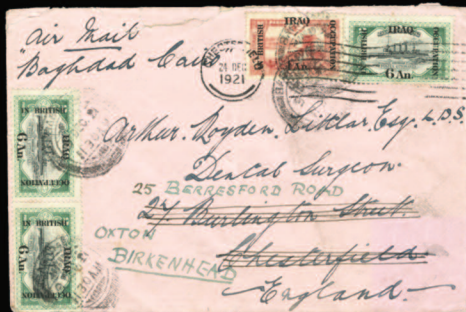 Air Mail
"Baghdad Cairo
CHESTERFIELD
DEC
1921
IRAQ
IN BRITISH
OCCUPATION
An.
IRAQ
IN BRITISH
OCCUPATION
6 An.
IRAQ
IN BRITISH
OCCUPATION
6 An.
IRAQ
IN BRITISH
OCCUPATION
6 An.
Arthur Royden Littlar, Esq. L.D.S.
Dental Surgeon.
25 BERRESFORD ROAD
27 Burlington Street.
OXTON
Chesterfield
BIRKENHEAD
England.